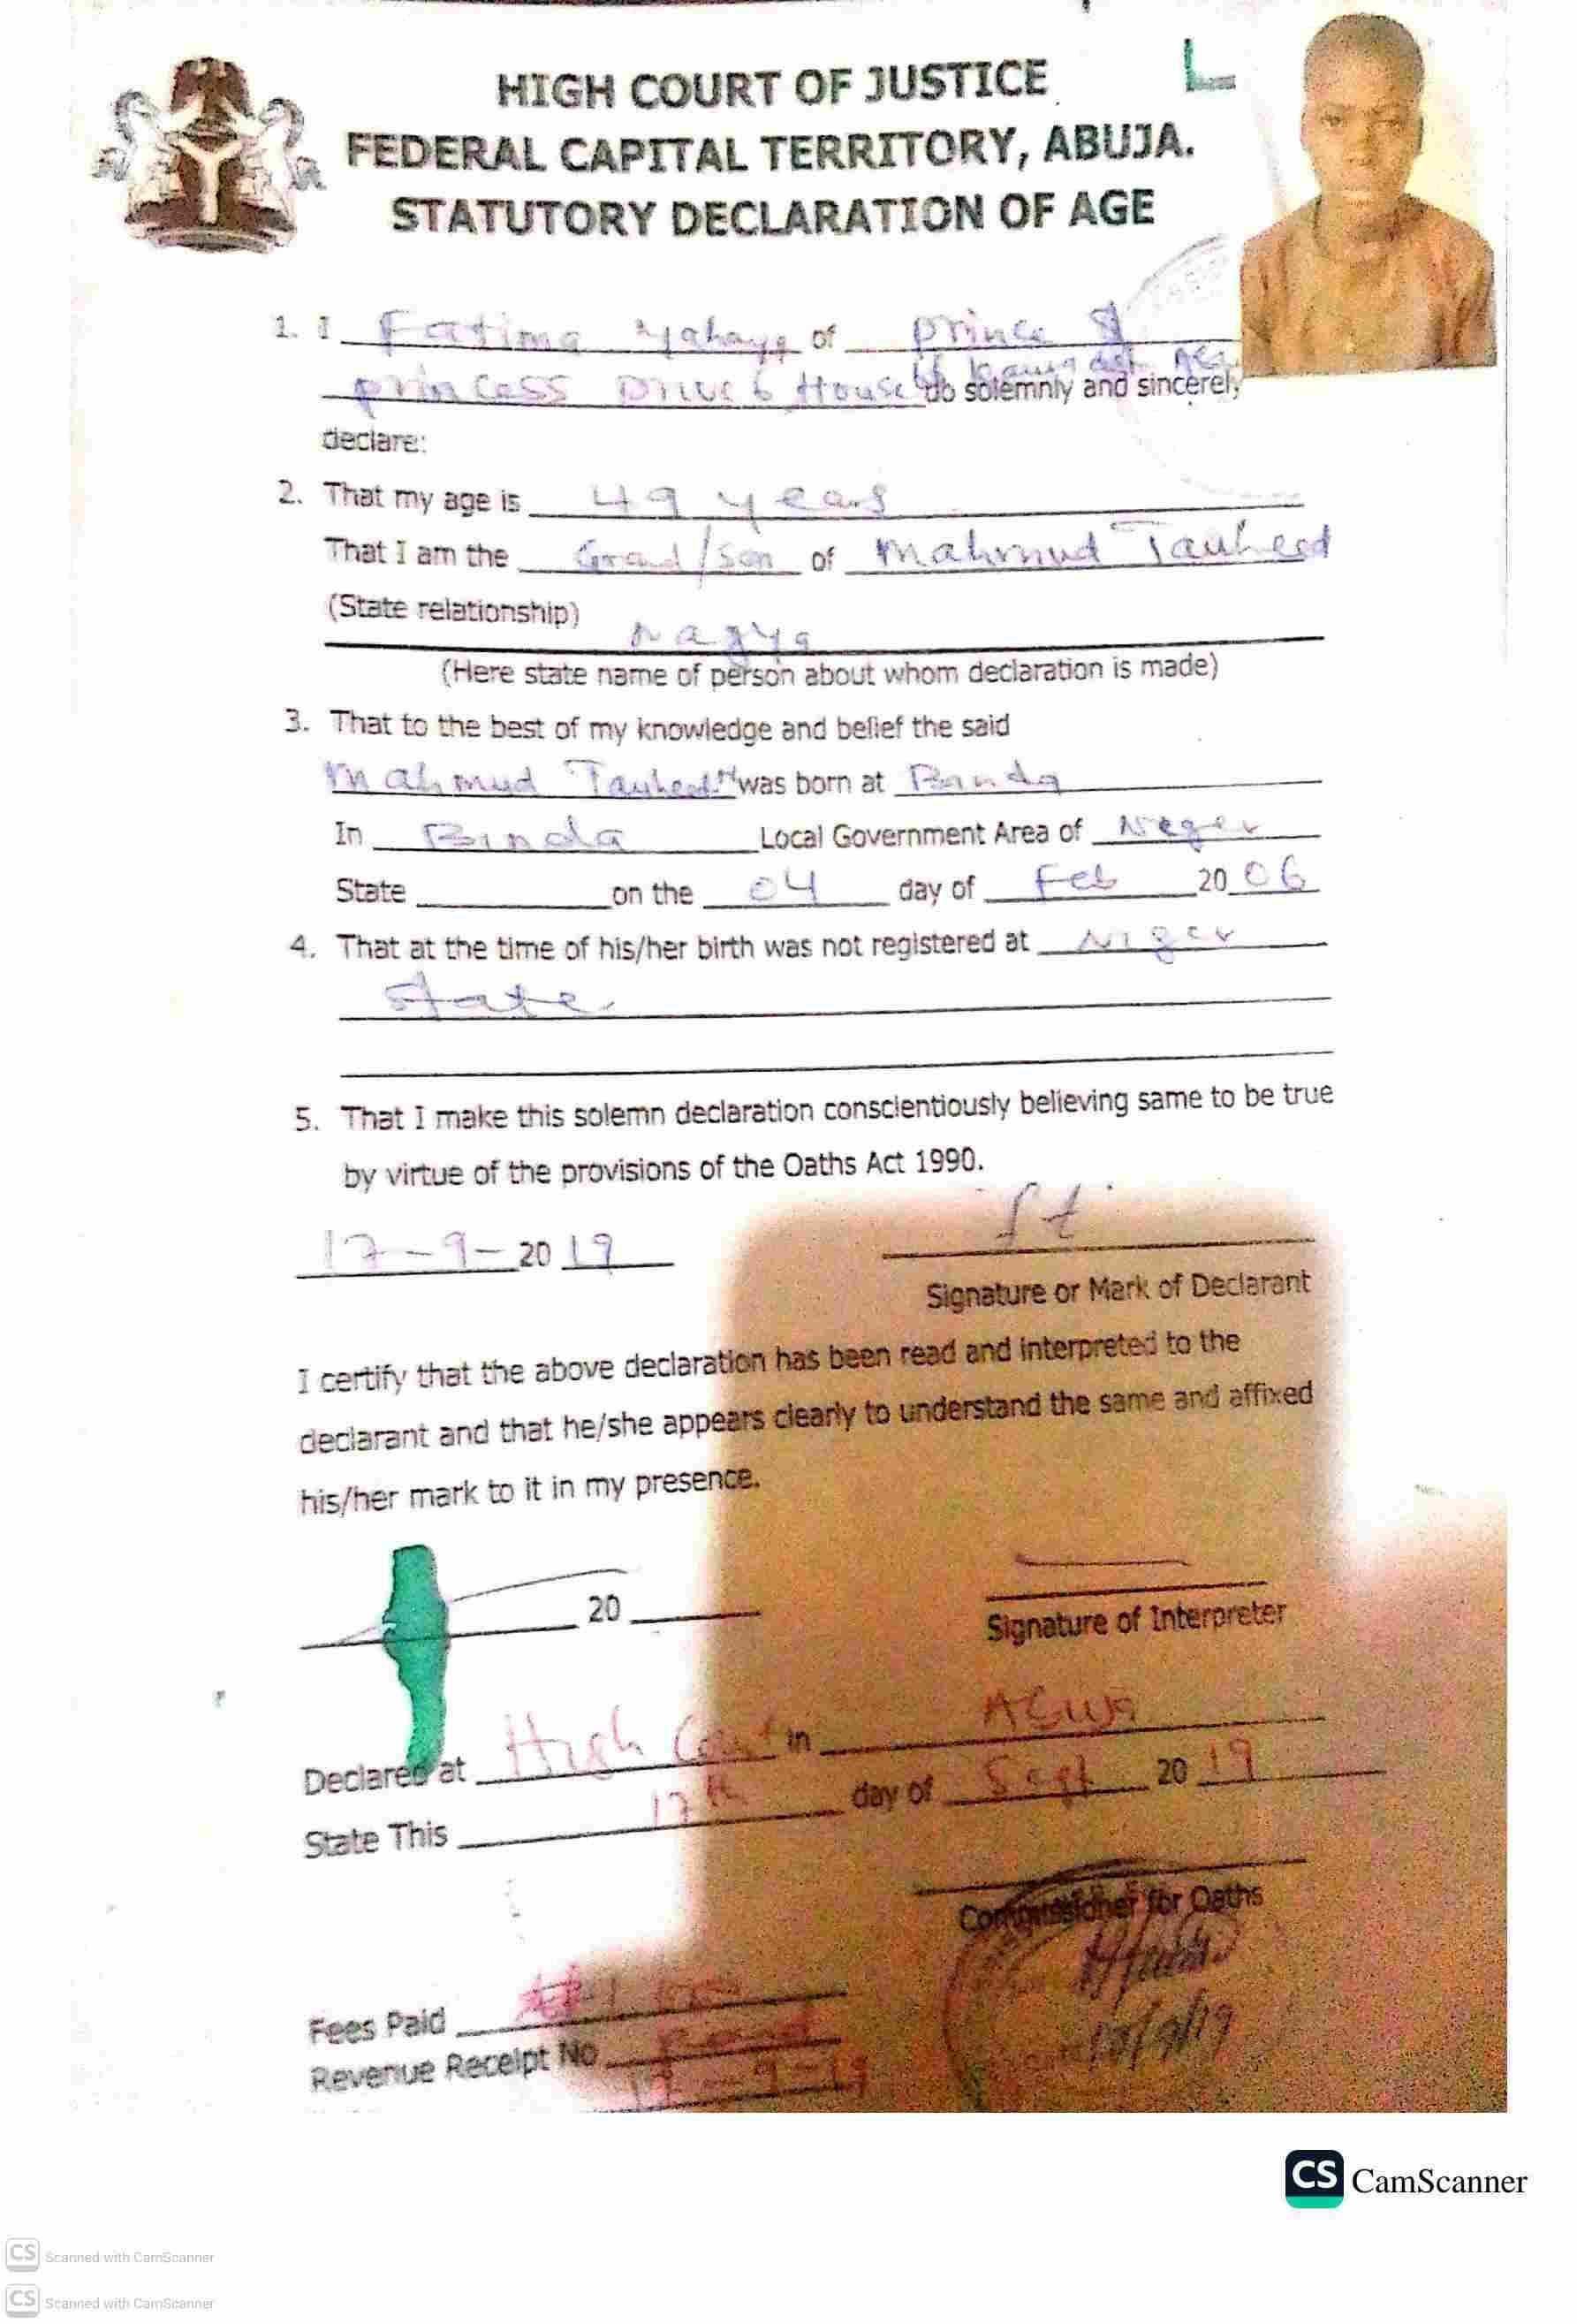 HIGH COURT OF JUSTICE
FEDERAL CAPITAL TERRITORY, ABUJA.
STATUTORY DECLARATION OF AGE
1. I Fatima Yahaya of prince &
princess Drive 6 House do solemnly and sincerely
declare:
2. That my age is 49 years
That I am the Grand/son of Mahmud Tauheed
(State relationship)
(Here state name of person about whom declaration is made)
3. That to the best of my knowledge and belief the said
Mahmud Tauheed was born at
In Binda Local Government Area of Neger
State on the 04 day of Feb 2006
4. That at the time of his/her birth was not registered at Niger
state
5. That I make this solemn declaration conscientiously believing same to be true
by virtue of the provisions of the Oaths Act 1990.
17-9-2019
Signature or Mark of Declarant
I certify that the above declaration has been read and interpreted to the
declarant and that he/she appears clearly to understand the same and affixed
his/her mark to it in my presence.
20
Signature of Interpreter
Declared at High Court in
State This 17th day of Sept 2019
Commissioner for Oaths
Fees Paid
Revenue Receipt No
17-9-19
CS CamScanner
CS Scanned with CamScanner
CS Scanned with CamScanner